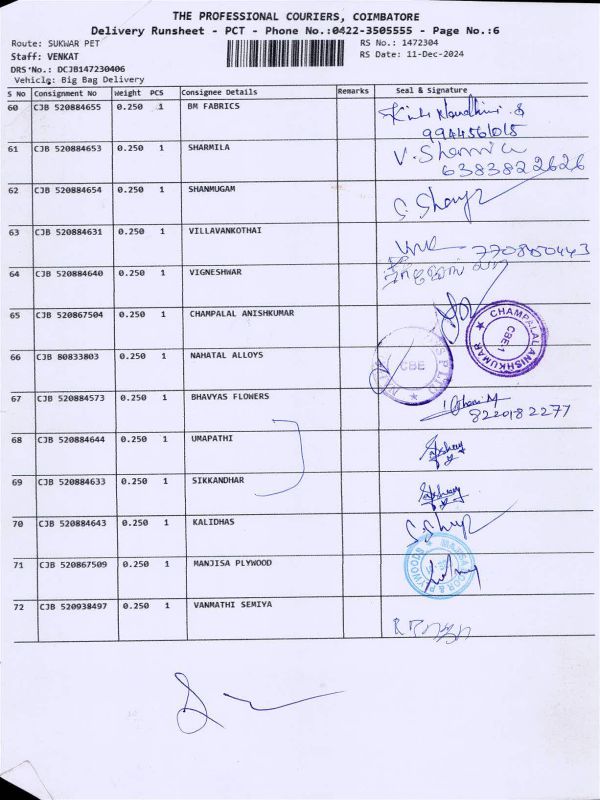 THE PROFESSIONAL COURIERS, COIMBATORE
Delivery Runsheet - PCT - Phone No.:0422-3505555 - Page No.:6
Route: SUKWAR PET RS No.: 1472304
Staff: VENKAT RS Date: 11-Dec-2024
DRS No.: DCJB147230406
Vehicle: Big Bag Delivery
S No Consignment No Weight PCS Consignee Details Remarks Seal & Signature
60 CJB 520884655 0.250 1 BM FABRICS
9944561015
61 CJB 520884653 0.250 1 SHARMILA V.
6383822626
62 CJB 520884654 0.250 1 SHANMUGAM
63 CJB 520884631 0.250 1 VILLAVANKOTHAI
64 CJB 520884640 0.250 1 VIGNESHWAR
65 CJB 520867504 0.250 1 CHAMPALAL ANISHKUMAR CHAMPALAL ANISHKUMAR CBE-1
66 CJB 80833803 0.250 1 NAHATAL ALLOYS CBE
67 CJB 520884573 0.250 1 BHAVYAS FLOWERS
8220182277
68 CJB 520884644 0.250 1 UMAPATHI
69 CJB 520884633 0.250 1 SIKKANDHAR
70 CJB 520884643 0.250 1 KALIDHAS
71 CJB 520867509 0.250 1 MANJISA PLYWOOD
72 CJB 520938497 0.250 1 VANMATHI SEMIYA